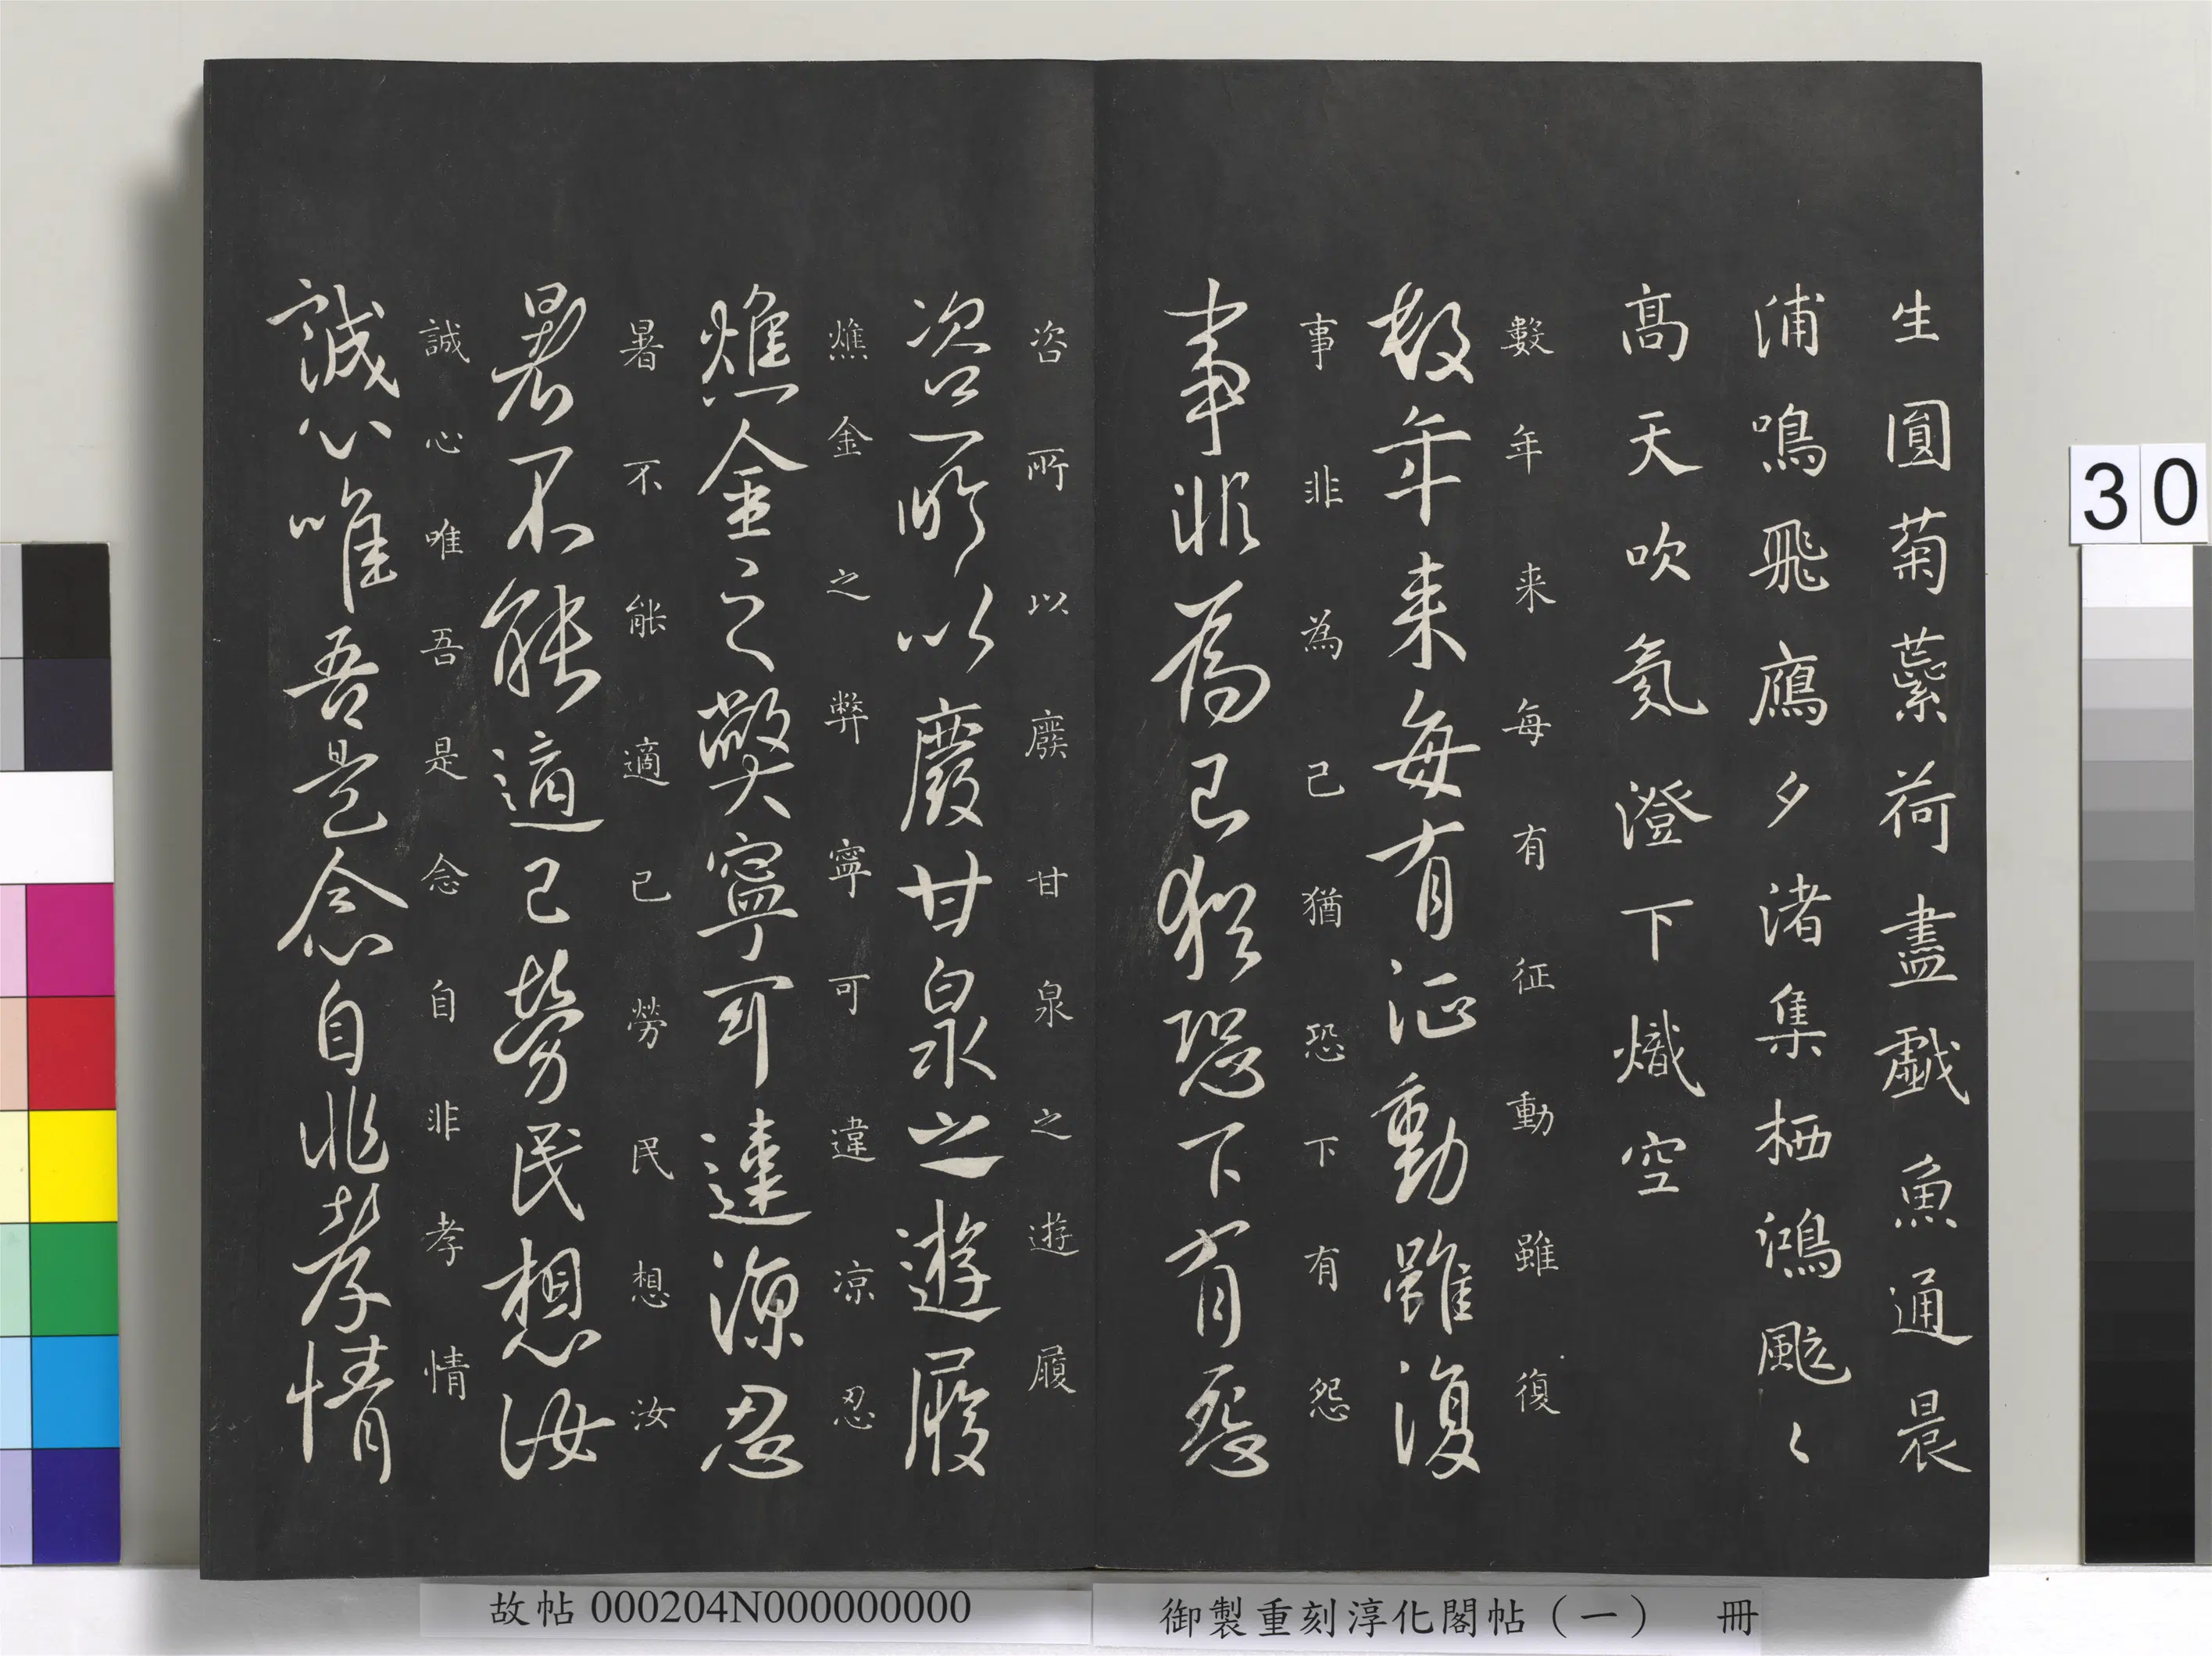 生圓菊蘂荷盡戱魚通晨
浦鳴飛鴈夕渚集栖鴻颭〻
高天吹氣澄下熾空
數年来每有征動雖復
數年来每有征動雖復
事非為己猶恐下有怨
事非為己猶恐下有怨
咨所以廢甘泉之遊履
咨所以廢甘泉之遊履
燋金之弊寧可違凉忍
燋金之弊寧可違凉忍
暑不能適己勞民想汝
暑不能適己勞民想汝
誠心唯吾是念自非孝情
誠心唯吾是念自非孝情
30
故帖 000204N000000000
御製重刻淳化閣帖（一） 冊